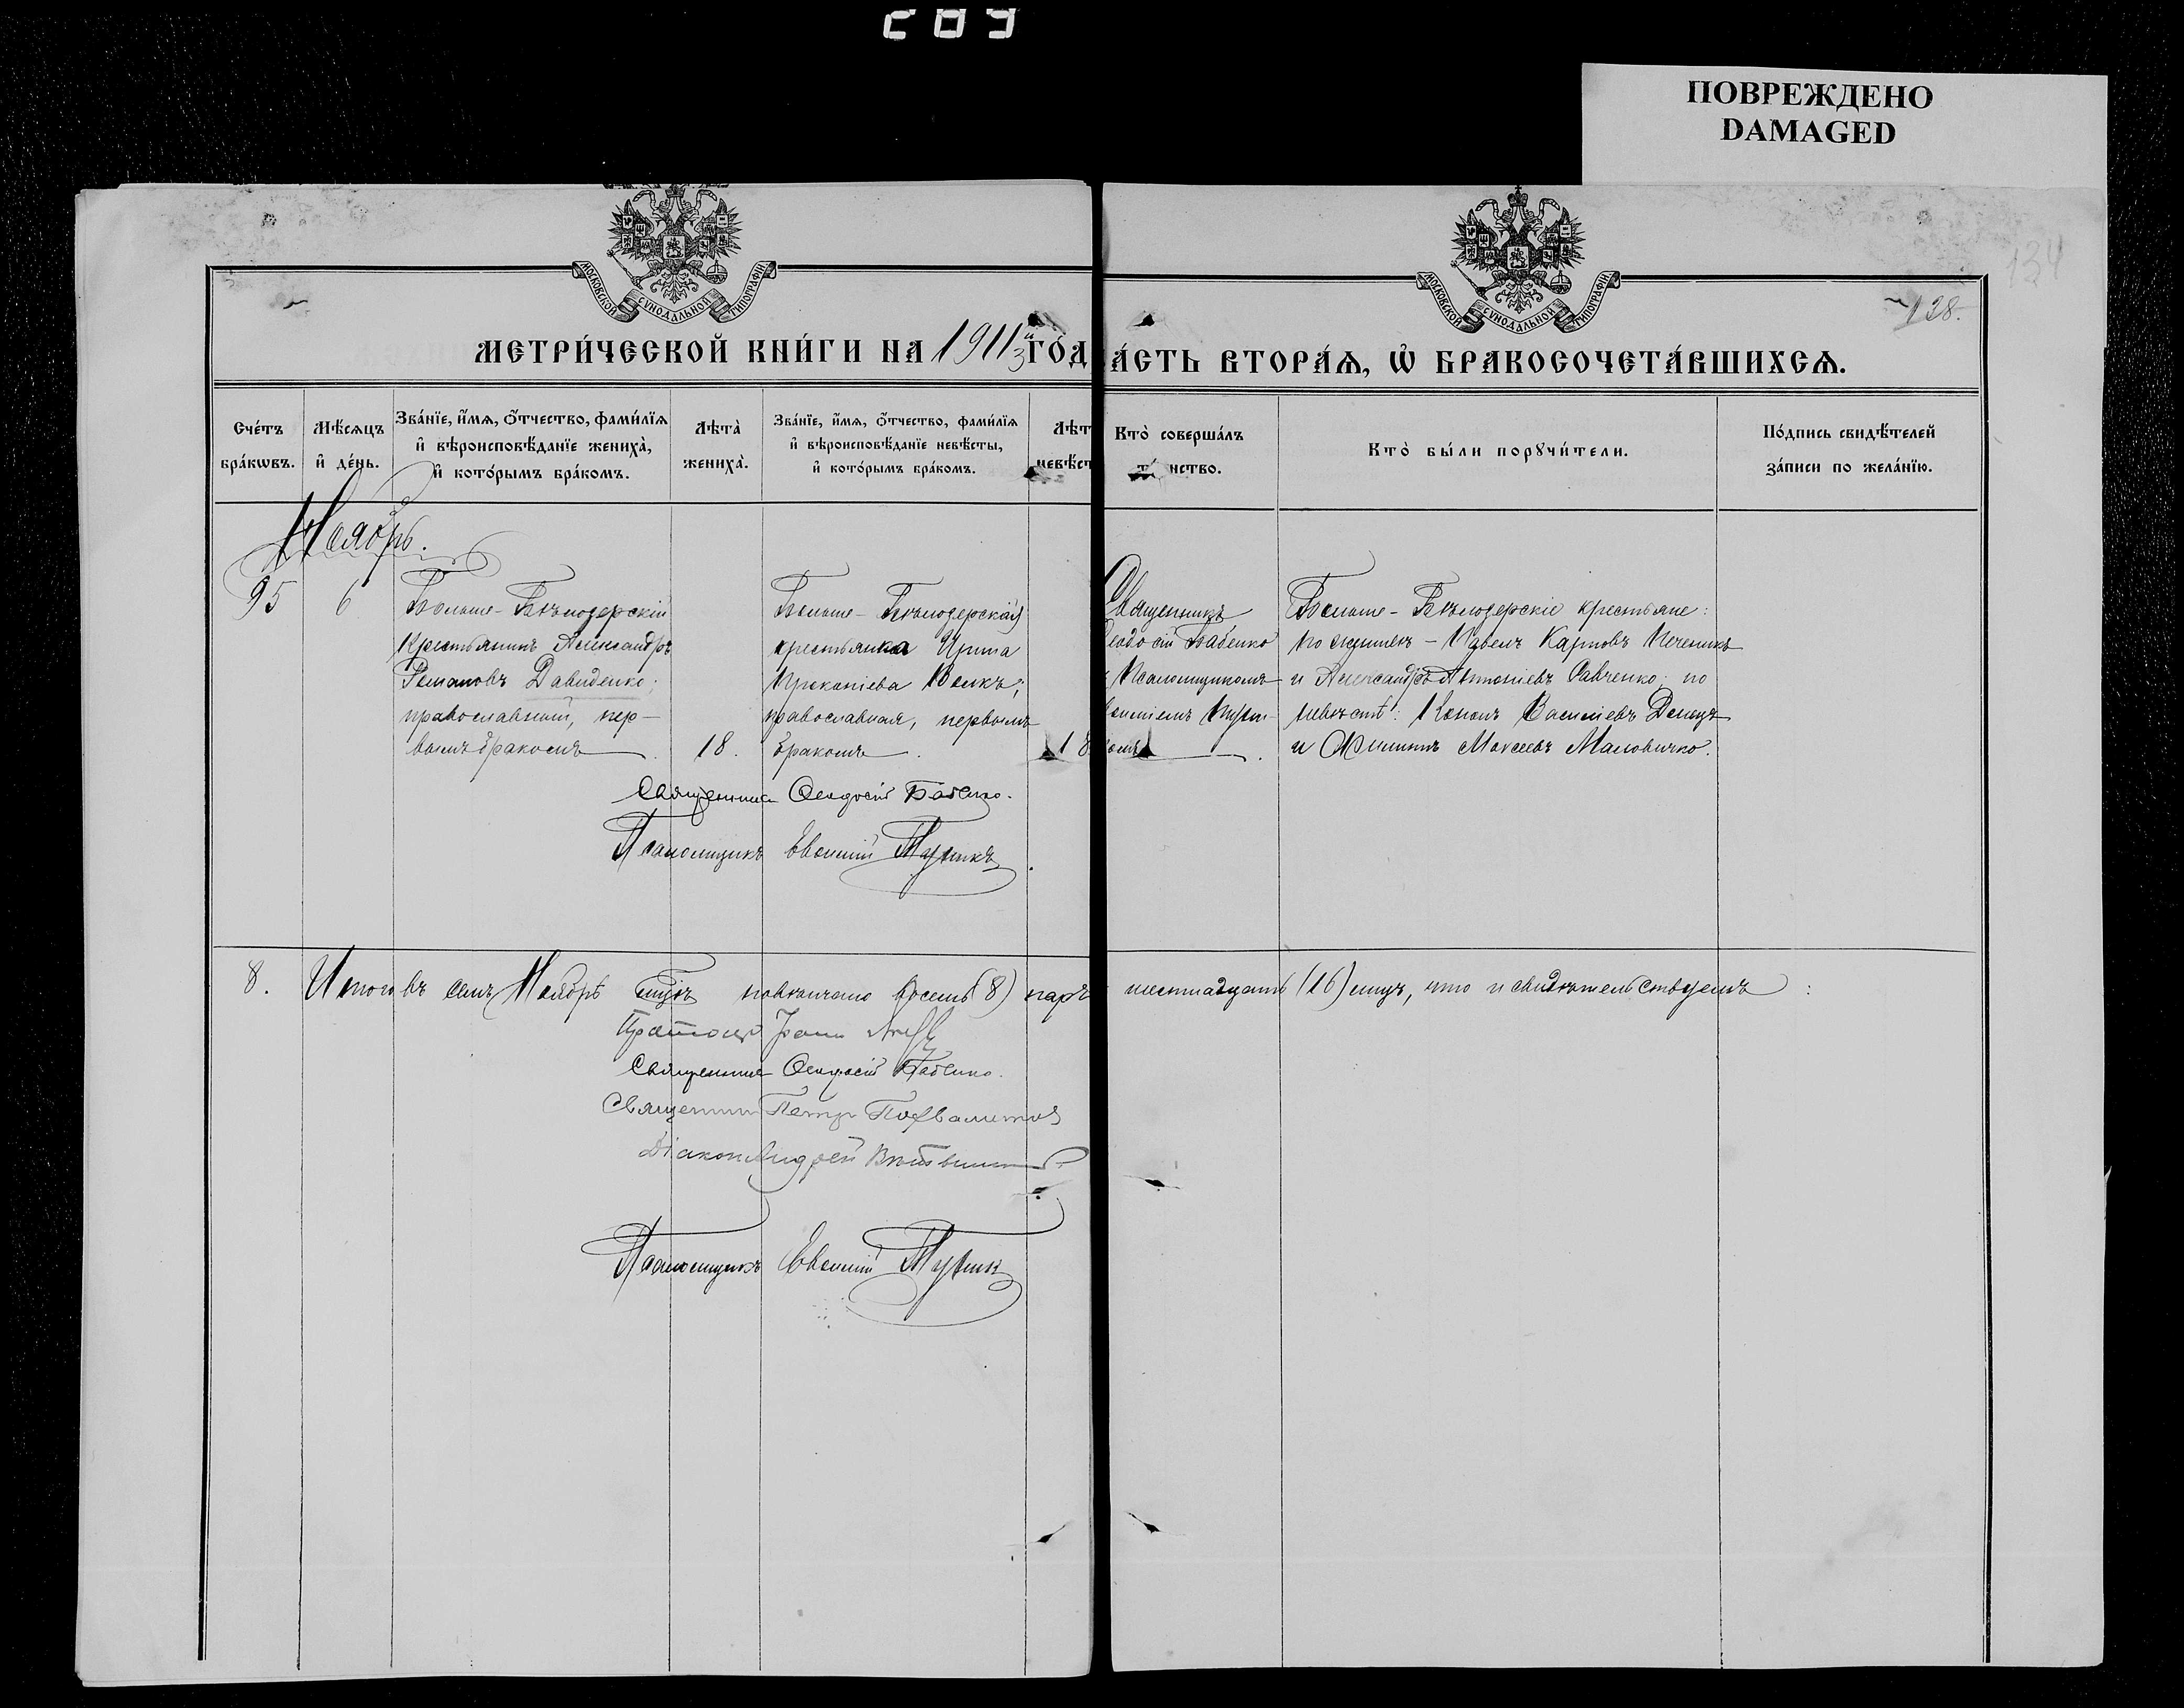 209
ПОВРЕЖДЕНО
DAMAGED
МОСКОВСКОЙ СѴНОДАЛЬНОЙ ТИПОГРАФІИ
МОСКОВСКОЙ СѴНОДАЛЬНОЙ ТИПОГРАФІИ
134
138.
МЕТРИ́ЧЕСКОЙ КНИ́ГИ НА 1911й ГО́Д
А́СТЬ ВТОРА́Ѧ, Ѡ҆ БРАКОСОЧЕТА́ВШИХСѦ.
Сче́тъ бра́кѡвъ.
Мѣ́сѧцъ и҆ де́нь.
Зва́нїе, и҆́мѧ, ѻ҆́тчество, фами́лїѧ
и҆ вѣроисповѣ́данїе жениха̀,
и҆ кото́рымъ бра́комъ.
Лѣта̀ жениха̀.
Зва́нїе, и҆́мѧ, ѻ҆́тчество, фами́лїѧ
и҆ вѣроисповѣ́данїе невѣ́сты,
и҆ кото́рымъ бра́комъ.
Лѣт
невѣ́ст
Кто̀ соверша́лъ
та нство.
Кто̀ бы́ли порꙋчи́тели.
По́дпись свидѣ́телей
за́писи по жела́нїю.
Ноябрь.
95
6
Больше-Бѣлозерскій
Крестьянинъ Александръ
Романовъ Давиденко;
православный, пер-
вымъ бракомъ.
18.
Больше-Бѣлозерская
крестьянка Ирина
Прокопіева Волкъ;
православная, первымъ
бракомъ.
18
Священникъ
еодосій Бабенко
Псаломщикомъ
Больше-Бѣлозерскіе крестьяне:
по женихѣ - Павелъ Карповъ Печеникъ
и Александръ Антоніевъ Савченко; по
невѣстѣ: Кононъ Василіевъ Донецъ
и Филиппъ Моисеевъ Маловичко.
Священникъ Ѳеодосій Бабенко.
Псаломщикъ Евѳимій
8. Итого въ семъ Ноябрѣ повѣнчано восемь (8) паръ шестнадцать (16) лицъ, что и свидѣтельствуемъ:
Протоіер
Священникъ Ѳеодосій Бабенко.
Священникъ Петръ
Діаконъ Андрей
Псаломщикъ Евѳимій